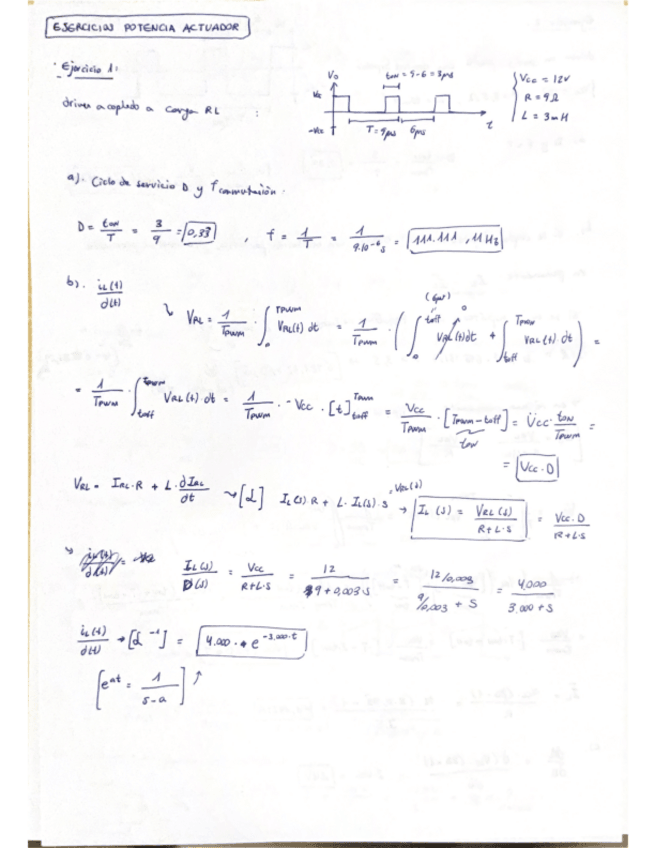 EJERCICIOS POTENCIA ACTUADOR
· Ejercicio 1:
driver acoplado a carga RL :
Vo ton = 9-6 = 3μs
Vcc
-Vcc T = 9μs 6μs t
Vcc = 12v
R = 9Ω
L = 3mH
a). Ciclo de servicio D y f conmutación.
D = ton/T = 3/9 = 0,33 , f = 1/T = 1/9·10⁻⁶s = 111.111,11 Hz
b). iL(t)/d(t)
↘ VRL = 1/Tpwm · ∫₀^Tpwm VRL(t) dt = 1/Tpwm · ( ∫₀^toff VRL(t)dt + ∫toff^Tpwm VRL(t)·dt ) =
0
= 1/Tpwm · ∫toff^Tpwm VRL(t)·dt = 1/Tpwm · -Vcc · [t]toff^Tpwm = Vcc/Tpwm · [Tpwm-toff] = Vcc · ton/Tpwm =
ton
= Vcc·D
VRL = IRL·R + L·dIRL/dt ↝ [L] IL(s)R + L·IL(s)·s = VRL(s) → IL(s) = VRL(s)/R+L·s = Vcc·D/R+L·s
IL(s)/D(s) = Vcc/R+L·s = 12/9+0,003·s = 12/0,003 / 9/0,003 + s = 4,000/3,000+s
iL(t)/d(t) → [L⁻¹] = 4,000·e^-3,000·t
[e^at = 1/s-a] ↑